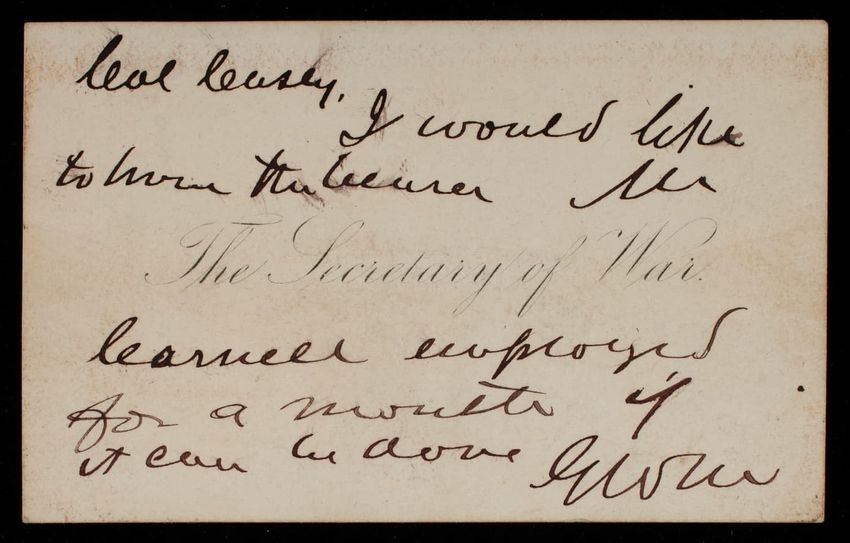 Col Casey,
I would like
to have the bearer Mr
The Secretary of War.
employed
for a month if
it can be done GWM